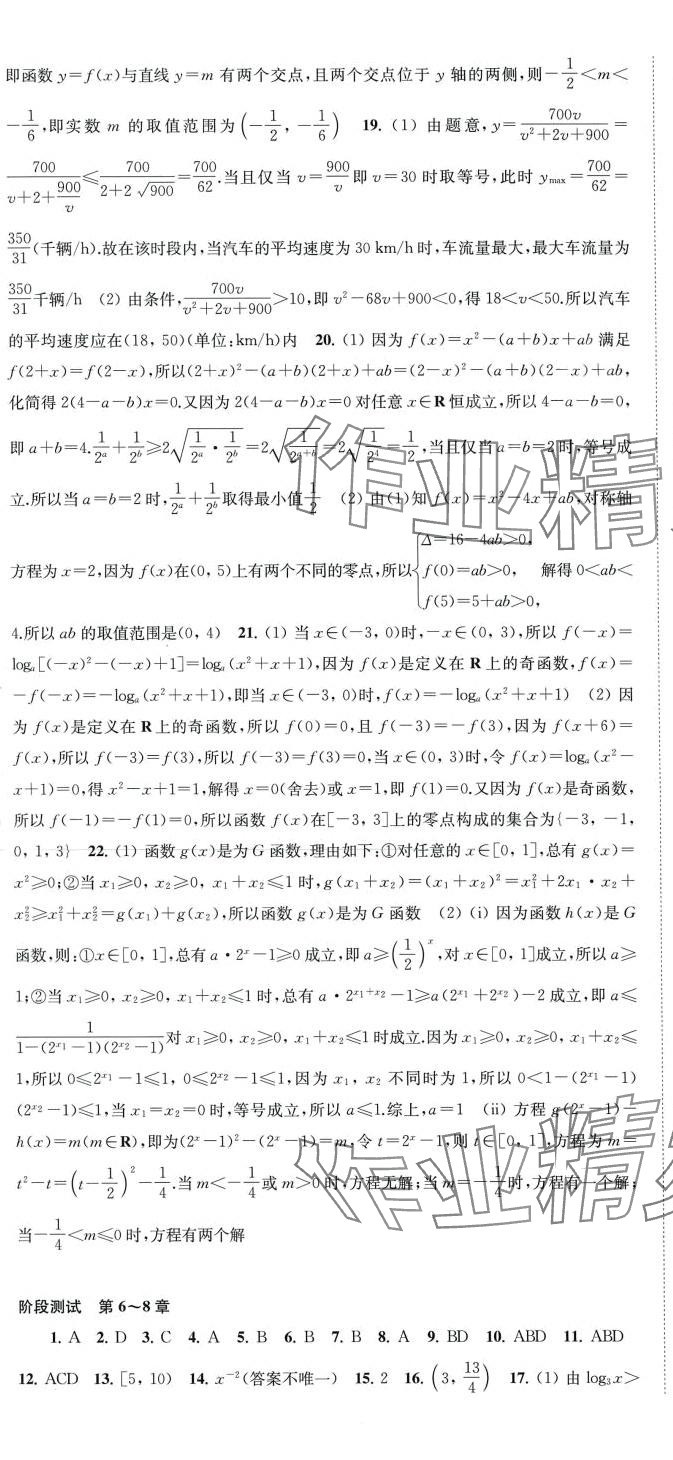 即函数 y=f(x)与直线 y=m 有两个交点,且两个交点位于 y 轴的两侧,则-1/2<m<
-1/6,即实数 m 的取值范围为(-1/2, -1/6) 19. (1) 由题意,y=700v/(v²+2v+900)=
700/(v+2+900/v)≤700/(2+2√900)=700/62.当且仅当 v=900/v 即 v=30 时取等号,此时 y_max=700/62=
350/31(千辆/h).故在该时段内,当汽车的平均速度为 30 km/h 时,车流量最大,最大车流量为
350/31千辆/h (2) 由条件,700v/(v²+2v+900)>10,即 v²-68v+900<0,得 18<v<50.所以汽车
的平均速度应在(18, 50)(单位:km/h)内 20. (1) 因为 f(x)=x²-(a+b)x+ab 满足
f(2+x)=f(2-x),所以(2+x)²-(a+b)(2+x)+ab=(2-x)²-(a+b)(2-x)+ab,
化简得 2(4-a-b)x=0.又因为 2(4-a-b)x=0 对任意 x∈R 恒成立,所以 4-a-b=0,
即 a+b=4.1/2^a+1/2^b≥2√(1/2^a·1/2^b)=2√(1/2^(a+b))=2√(1/2⁴)=1/2,当且仅当 a=b=2 时,等号成
立.所以当 a=b=2 时,1/2^a+1/2^b取得最小值1/2 (2) 由(1)知 f(x)=x²-4x+ab,对称轴
方程为 x=2,因为 f(x)在(0, 5)上有两个不同的零点,所以{Δ=16-4ab>0, f(0)=ab>0, f(5)=5+ab>0, 解得 0<ab<
4.所以 ab 的取值范围是(0, 4) 21. (1) 当 x∈(-3, 0)时,-x∈(0, 3),所以 f(-x)=
log_a[(-x)²-(-x)+1]=log_a(x²+x+1),因为 f(x)是定义在 R 上的奇函数,f(x)=
-f(-x)=-log_a(x²+x+1),即当 x∈(-3, 0)时,f(x)=-log_a(x²+x+1) (2) 因
为 f(x)是定义在 R 上的奇函数,所以 f(0)=0,且 f(-3)=-f(3),因为 f(x+6)=
f(x),所以 f(-3)=f(3),所以 f(-3)=f(3)=0,当 x∈(0, 3)时,令 f(x)=log_a(x²-
x+1)=0,得 x²-x+1=1,解得 x=0(舍去)或 x=1,即 f(1)=0.又因为 f(x)是奇函数,
所以 f(-1)=-f(1)=0,所以函数 f(x)在[-3, 3]上的零点构成的集合为{-3, -1,
0, 1, 3} 22. (1) 函数 g(x)是为 G 函数,理由如下:①对任意的 x∈[0, 1],总有 g(x)=
x²≥0;②当 x₁≥0, x₂≥0, x₁+x₂≤1 时,g(x₁+x₂)=(x₁+x₂)²=x₁²+2x₁·x₂+
x₂²≥x₁²+x₂²=g(x₁)+g(x₂),所以函数 g(x)是为 G 函数 (2) (i) 因为函数 h(x)是 G
函数,则:①x∈[0, 1],总有 a·2^x-1≥0 成立,即 a≥(1/2)^x,对 x∈[0, 1]成立,所以 a≥
1;②当 x₁≥0, x₂≥0, x₁+x₂≤1 时,总有 a·2^(x₁+x₂)-1≥a(2^x₁+2^x₂)-2 成立,即 a≤
1/(1-(2^x₁-1)(2^x₂-1))对 x₁≥0, x₂≥0, x₁+x₂≤1 时成立.因为 x₁≥0, x₂≥0, x₁+x₂≤
1,所以 0≤2^x₁-1≤1, 0≤2^x₂-1≤1,因为 x₁, x₂ 不同时为 1,所以 0<1-(2^x₁-1)
(2^x₂-1)≤1,当 x₁=x₂=0 时,等号成立,所以 a≤1.综上,a=1 (ii) 方程 g(2^x-1)-
h(x)=m(m∈R),即为(2^x-1)²-(2^x-1)=m,令 t=2^x-1,则 t∈[0, 1],方程为 m=
t²-t=(t-1/2)²-1/4.当 m<-1/4或 m>0 时,方程无解;当 m=-1/4时,方程有一个解;
当-1/4<m≤0 时,方程有两个解
阶段测试 第 6~8 章
1. A 2. D 3. C 4. A 5. B 6. B 7. B 8. A 9. BD 10. ABD 11. ABD
12. ACD 13. [5, 10) 14. x⁻²(答案不唯一) 15. 2 16. (3, 13/4) 17. (1) 由 log₃x>
作业精
作业精